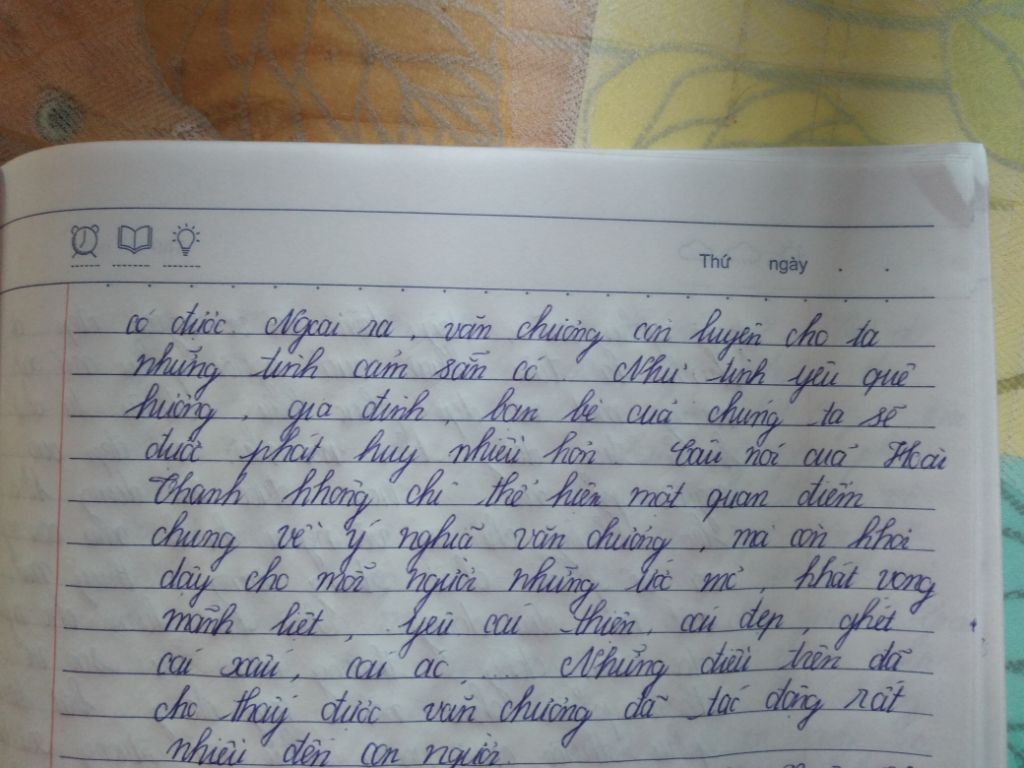 Thứ ngày . .
có được. Ngoài ra, văn chương còn luyện cho ta
những tình cảm sẵn có. Như tình yêu quê
hương, gia đình, bạn bè của chúng ta sẽ
được phát huy nhiều hơn. Câu nói của Hoài
Thanh không chỉ thể hiện một quan điểm
chung về ý nghĩa văn chương, mà còn khơi
dậy cho mỗi người những ước mơ, khát vọng
mãnh liệt, yêu cái thiện, cái đẹp, ghét
cái xấu, cái ác,.... Những điều trên đã
cho thấy được văn chương đã tác động rất
nhiều đến con người.